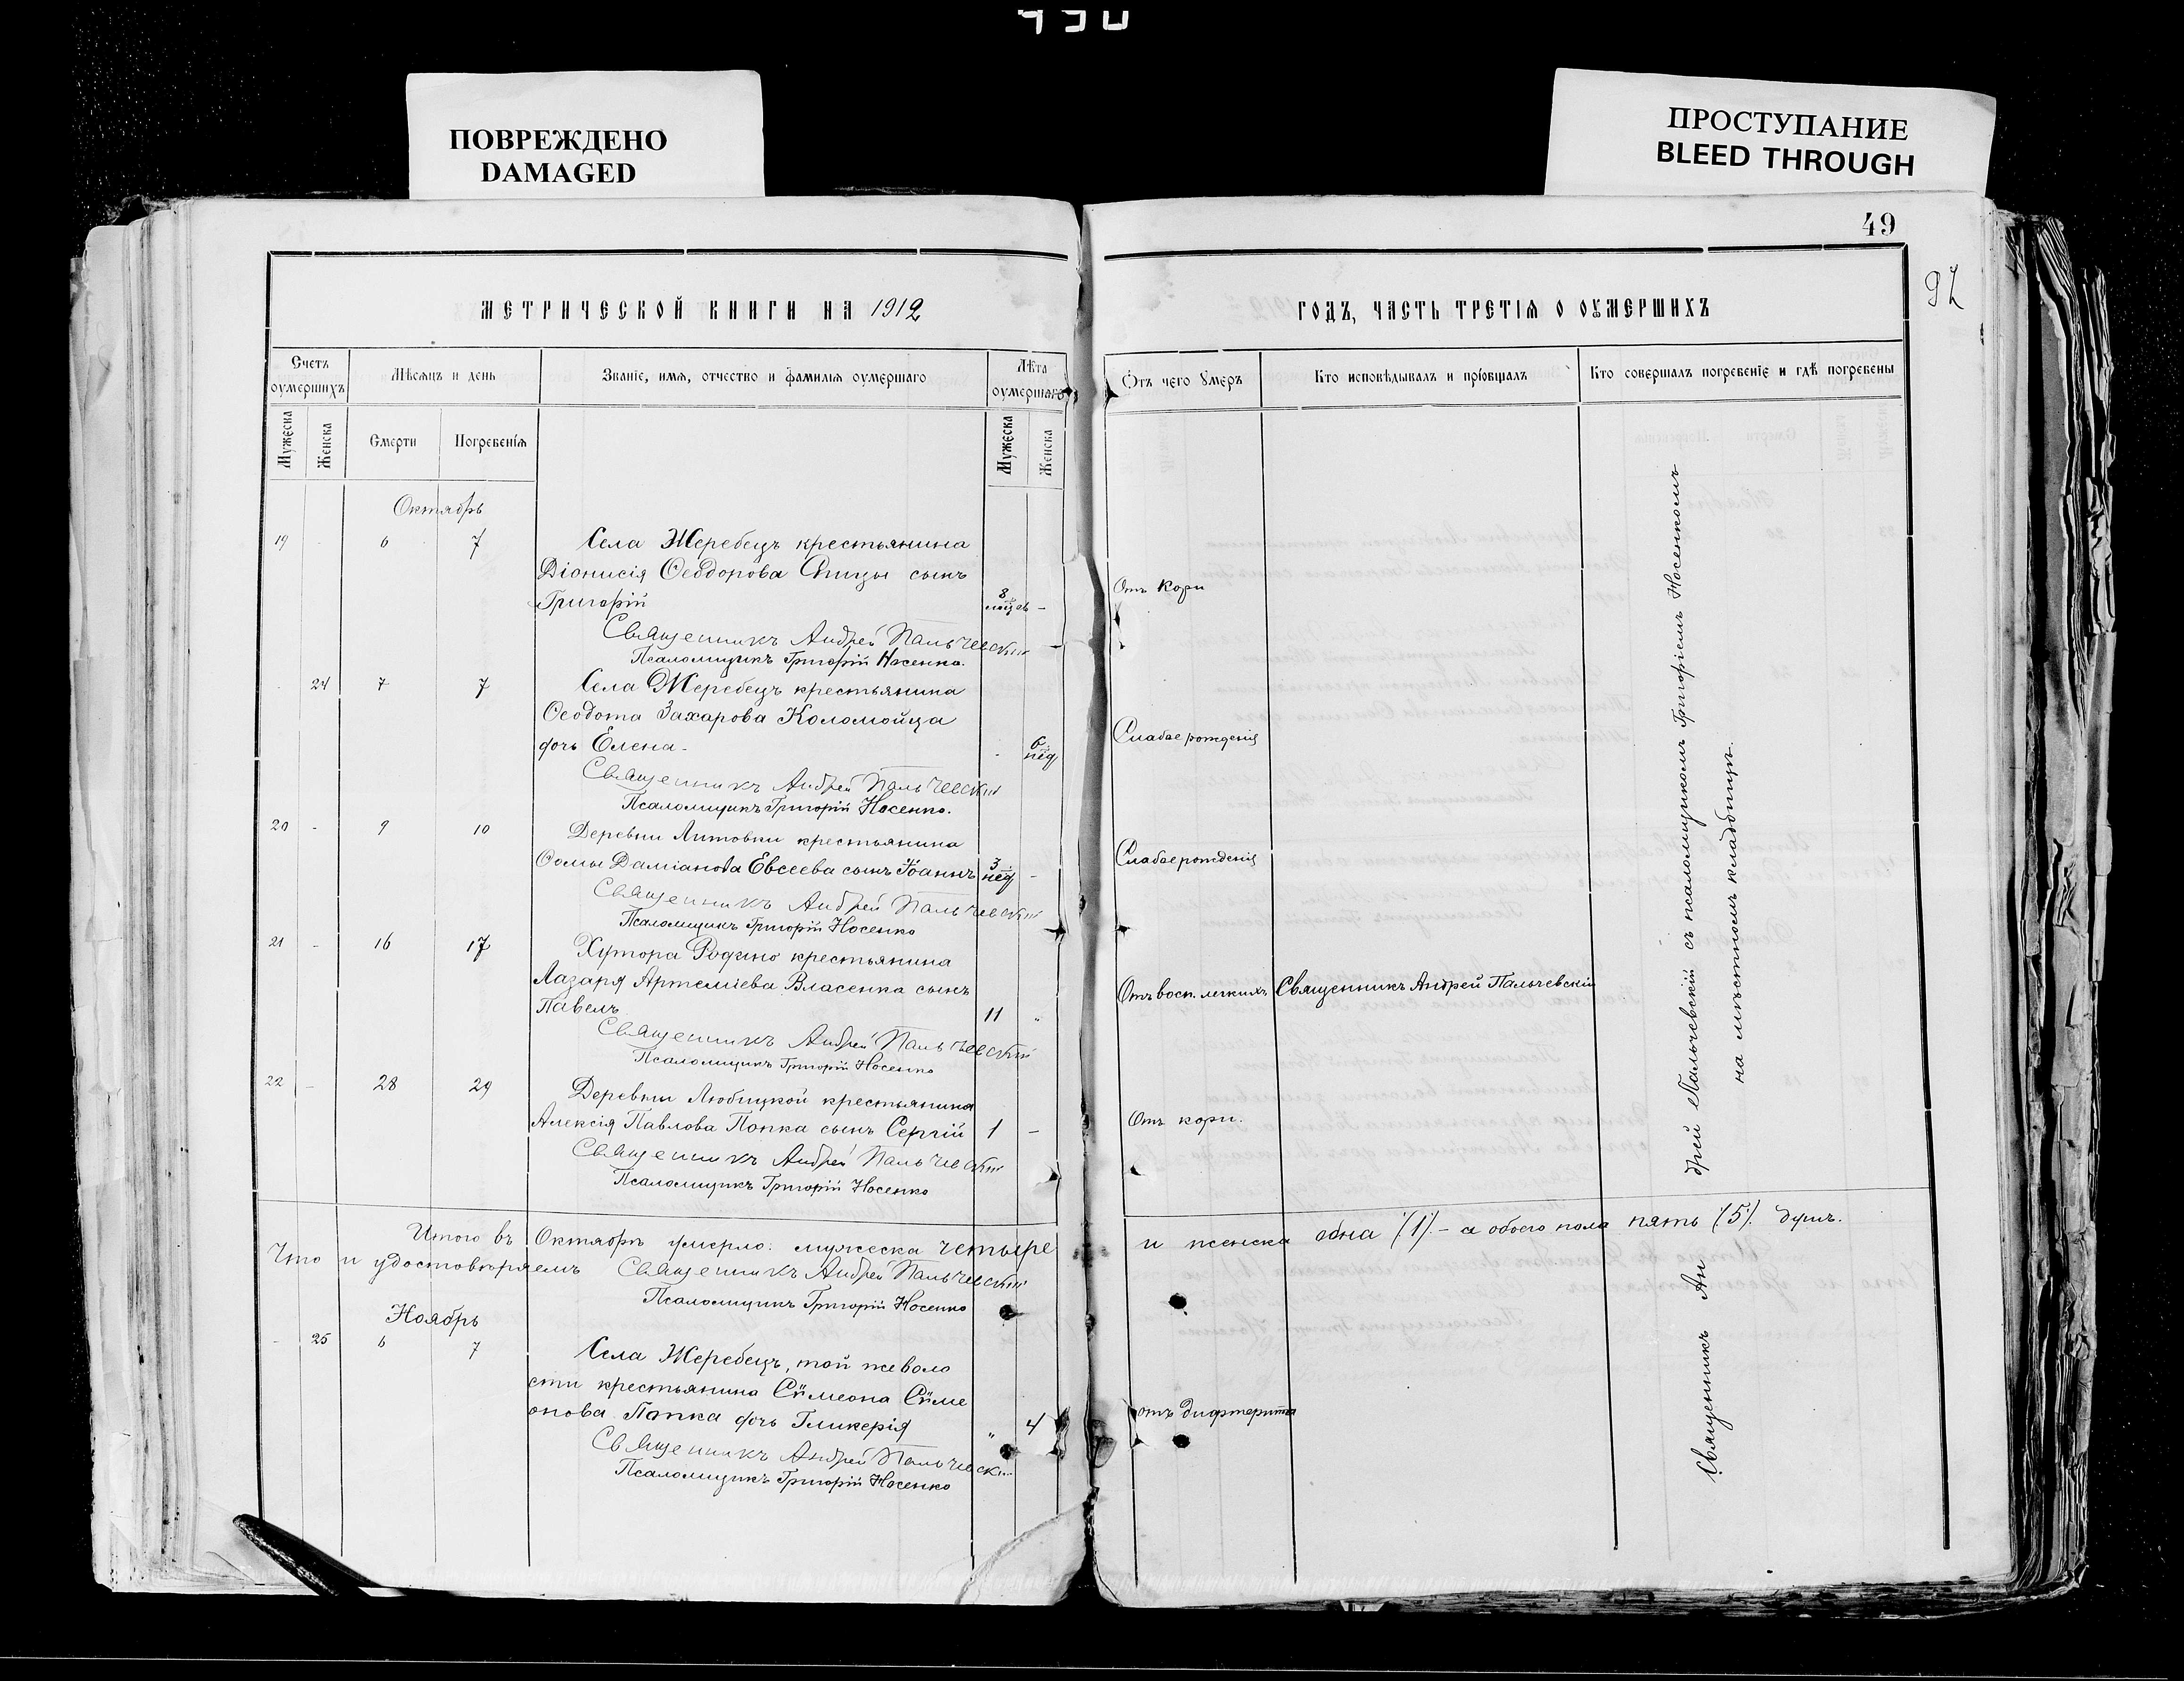 ПОВРЕЖДЕНО
DAMAGED
ПРОСТУПАНИЕ
BLEED THROUGH
49
МЕТРИЧЕСКОЙ КНИГИ НА 1912
Счетъ оумершихъ
Мѣсяцъ и день
Званіе, имя, отчество и фамилія оумершаго
Лѣта оумершаго
Мужеска
Женска
Смерти
Погребенія
Мужеска
Женска
Октябрь
19 6 7 Села Жеребецъ крестьянина
Діонисія Ѳеодорова Спицы сынъ
Григорій 8 мѣсяц. -
Священникъ Андрей Пальчевскій
Псаломщикъ Григорій Носенко.
24 7 7 Села Жеребецъ крестьянина
Ѳеодота Захарова Коломойца
дочь Елена - 6 нед
Священникъ Андрей Пальчевскій
Псаломщикъ Григорій Носенко.
20 - 9 10 Деревни Литовки крестьянина
Ѳомы Даміанова Евсеева сынъ Іоаннъ 3 нед -
Священникъ Андрей Пальчевскій
Псаломщикъ Григорій Носенко
21 - 16 17 Хутора крестьянина
Лазаря Артеміева Власенка сынъ
Павелъ 11 "
Священникъ Андрей Пальчевскій
Псаломщикъ Григорій Носенко
22 - 28 29 Деревни Любицкой крестьянина
Алексія Павлова Попка сынъ Сергій 1 -
Священникъ Андрей Пальчевскій
Псаломщикъ Григорій Носенко
Итого въ Октябрѣ умерло: мужеска четыре
Что и удостовѣряемъ Священникъ Андрей Пальчевскій
Псаломщикъ Григорій Носенко
Ноябрь
- 25 6 7 Села Жеребецъ, той же воло
сти крестьянина Сѷмеона Сѷме
онова Попка дочь Гликерія " 4
Священникъ Андрей Пальчевскій
Псаломщикъ Григорій Носенко
ГОДЪ, ЧАСТЬ ТРЕТІЯ О ОУМЕРШИХЪ
Отъ чего умеръ
Кто исповѣдывалъ и пріобщалъ
Кто совершалъ погребеніе и гдѣ погребены
Отъ кори
Слабое рожденія
Слабое рожденія
Отъ восп. легкихъ Священникъ Андрей Пальчевскій
Отъ кори.
и женска одна (1) - а обоего пола пять (5) душъ.
отъ дифтерита
Священникъ Андрей Пальчевскій съ псаломщикомъ Григоріемъ Носенкомъ
на мѣстномъ кладбищѣ.